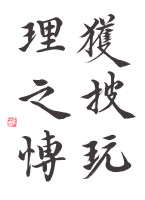 獲披玩
理之愽